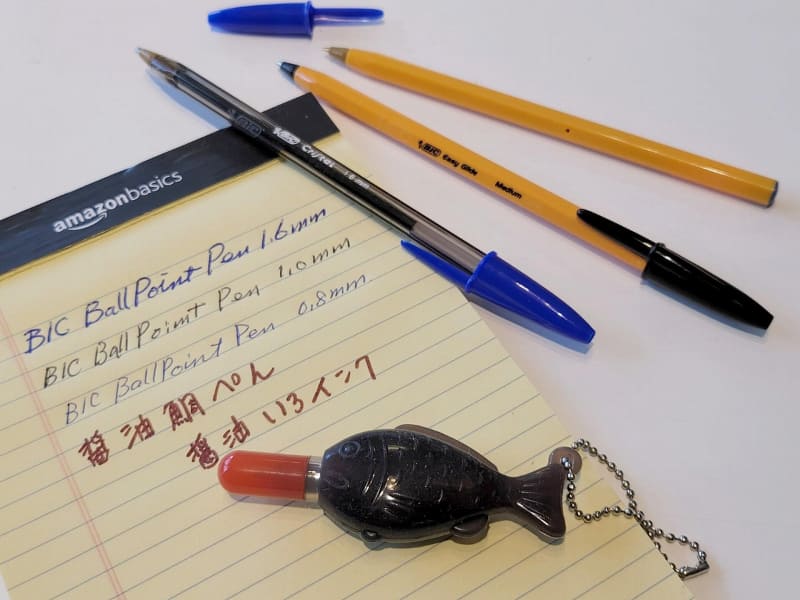 BIC
BIC Cristal 1.6 mm
BIC Easy Glide Medium
amazonbasics
BIC BallPoint Pen 1.6mm
BIC BallPoint Pen 1.0mm
BIC BallPoint Pen 0.8mm
醤油鯛ぺん
醤油いろインク